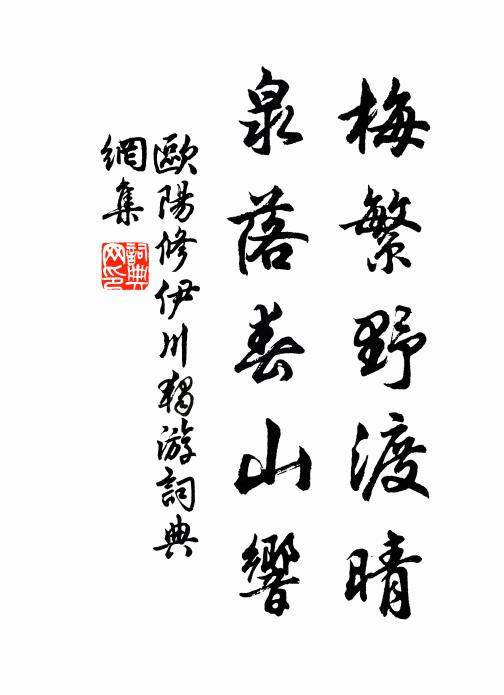 梅繁野渡晴
泉落春山響
歐陽修伊川獨游詞典
網集
詞典
网印